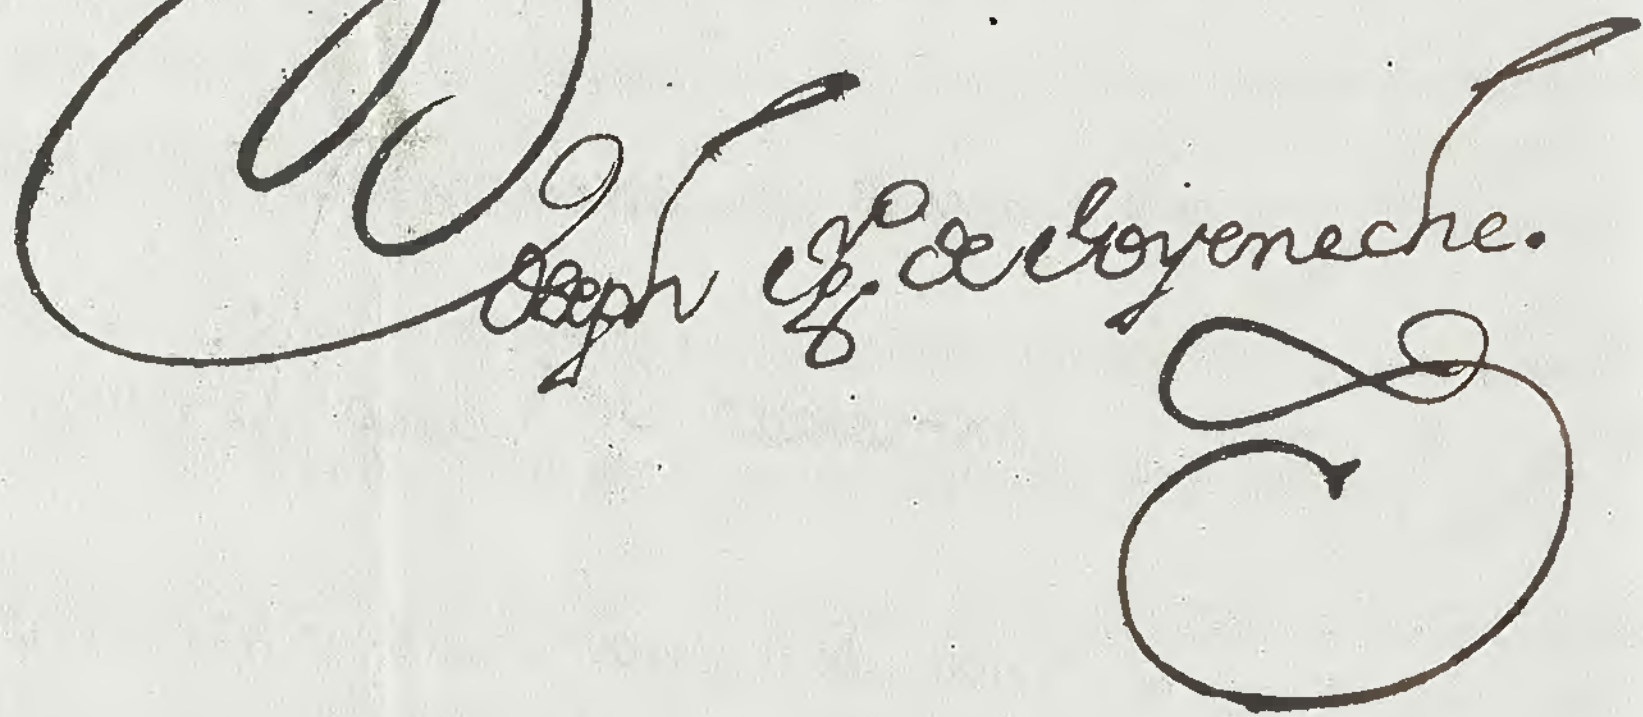 Joseph Ygº. de Goyeneche.